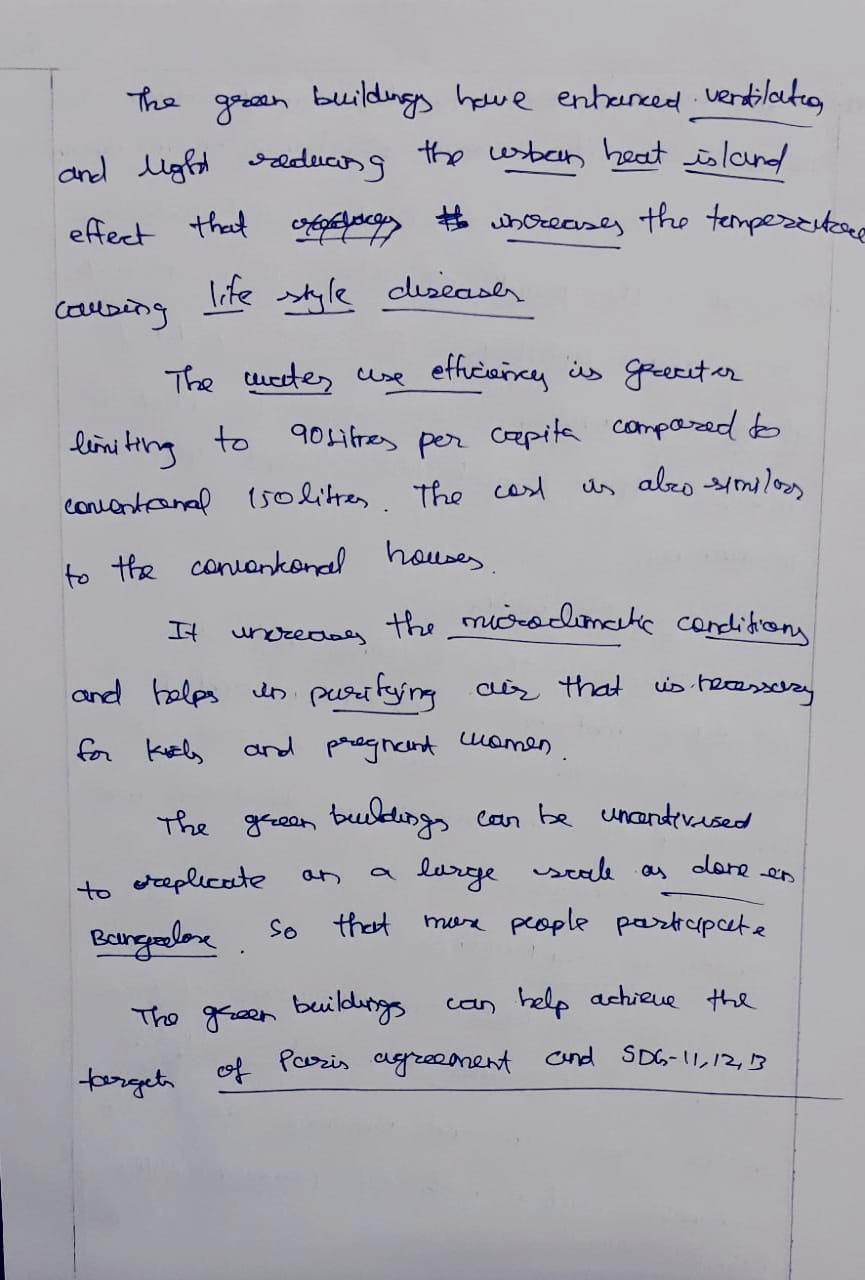 The green buildings have enhanced ventilation
and light reducing the urban heat island
effect that increases the temperature
causing life style diseases
The water use efficiency is greater
limiting to 90 litres per capita compared to
conventional 150 litres. The cost is also similar
to the conventional houses.
It increases the microclimatic conditions
and helps in purifying air that is necessary
for kids and pregnant women.
The green buildings can be incentivised
to replicate on a large scale as done in
Bangalore. So that more people participate
The green buildings can help achieve the
targets of Paris agreement and SDG-11,12,13